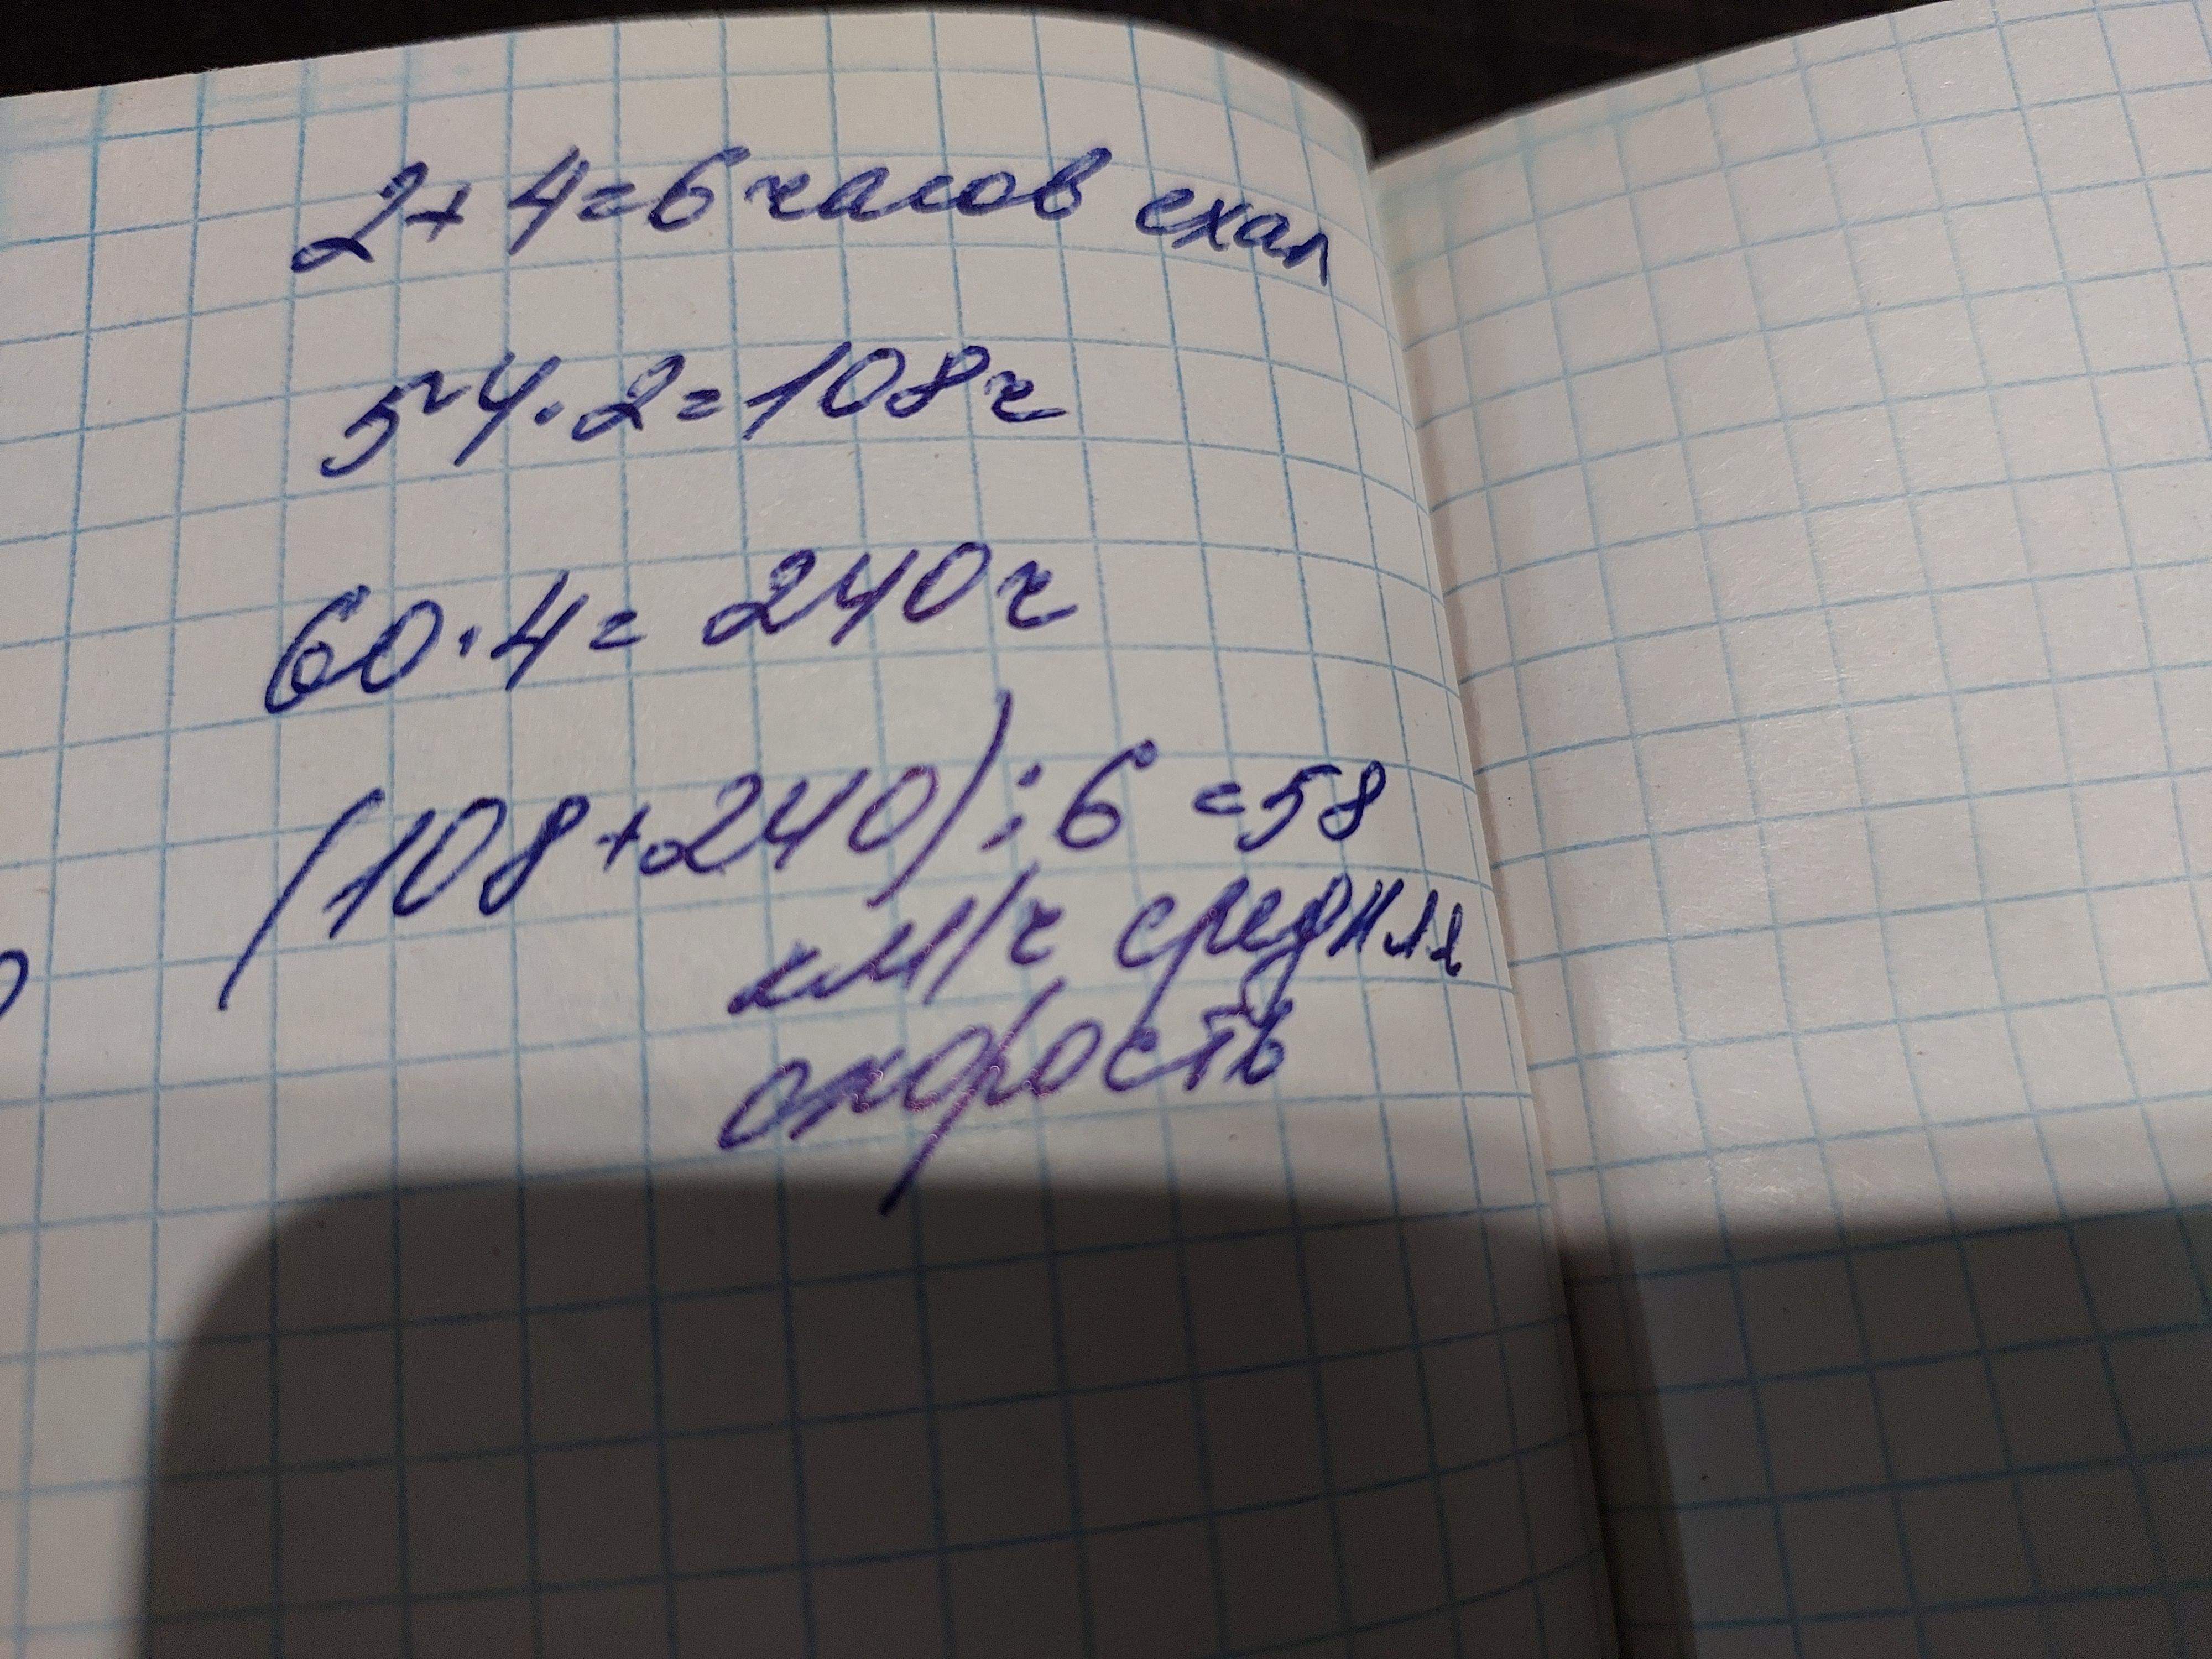 2+4=6 часов ехал
54·2=108ч
60·4=240ч
(108+240):6=58
км/ч средняя
скорость